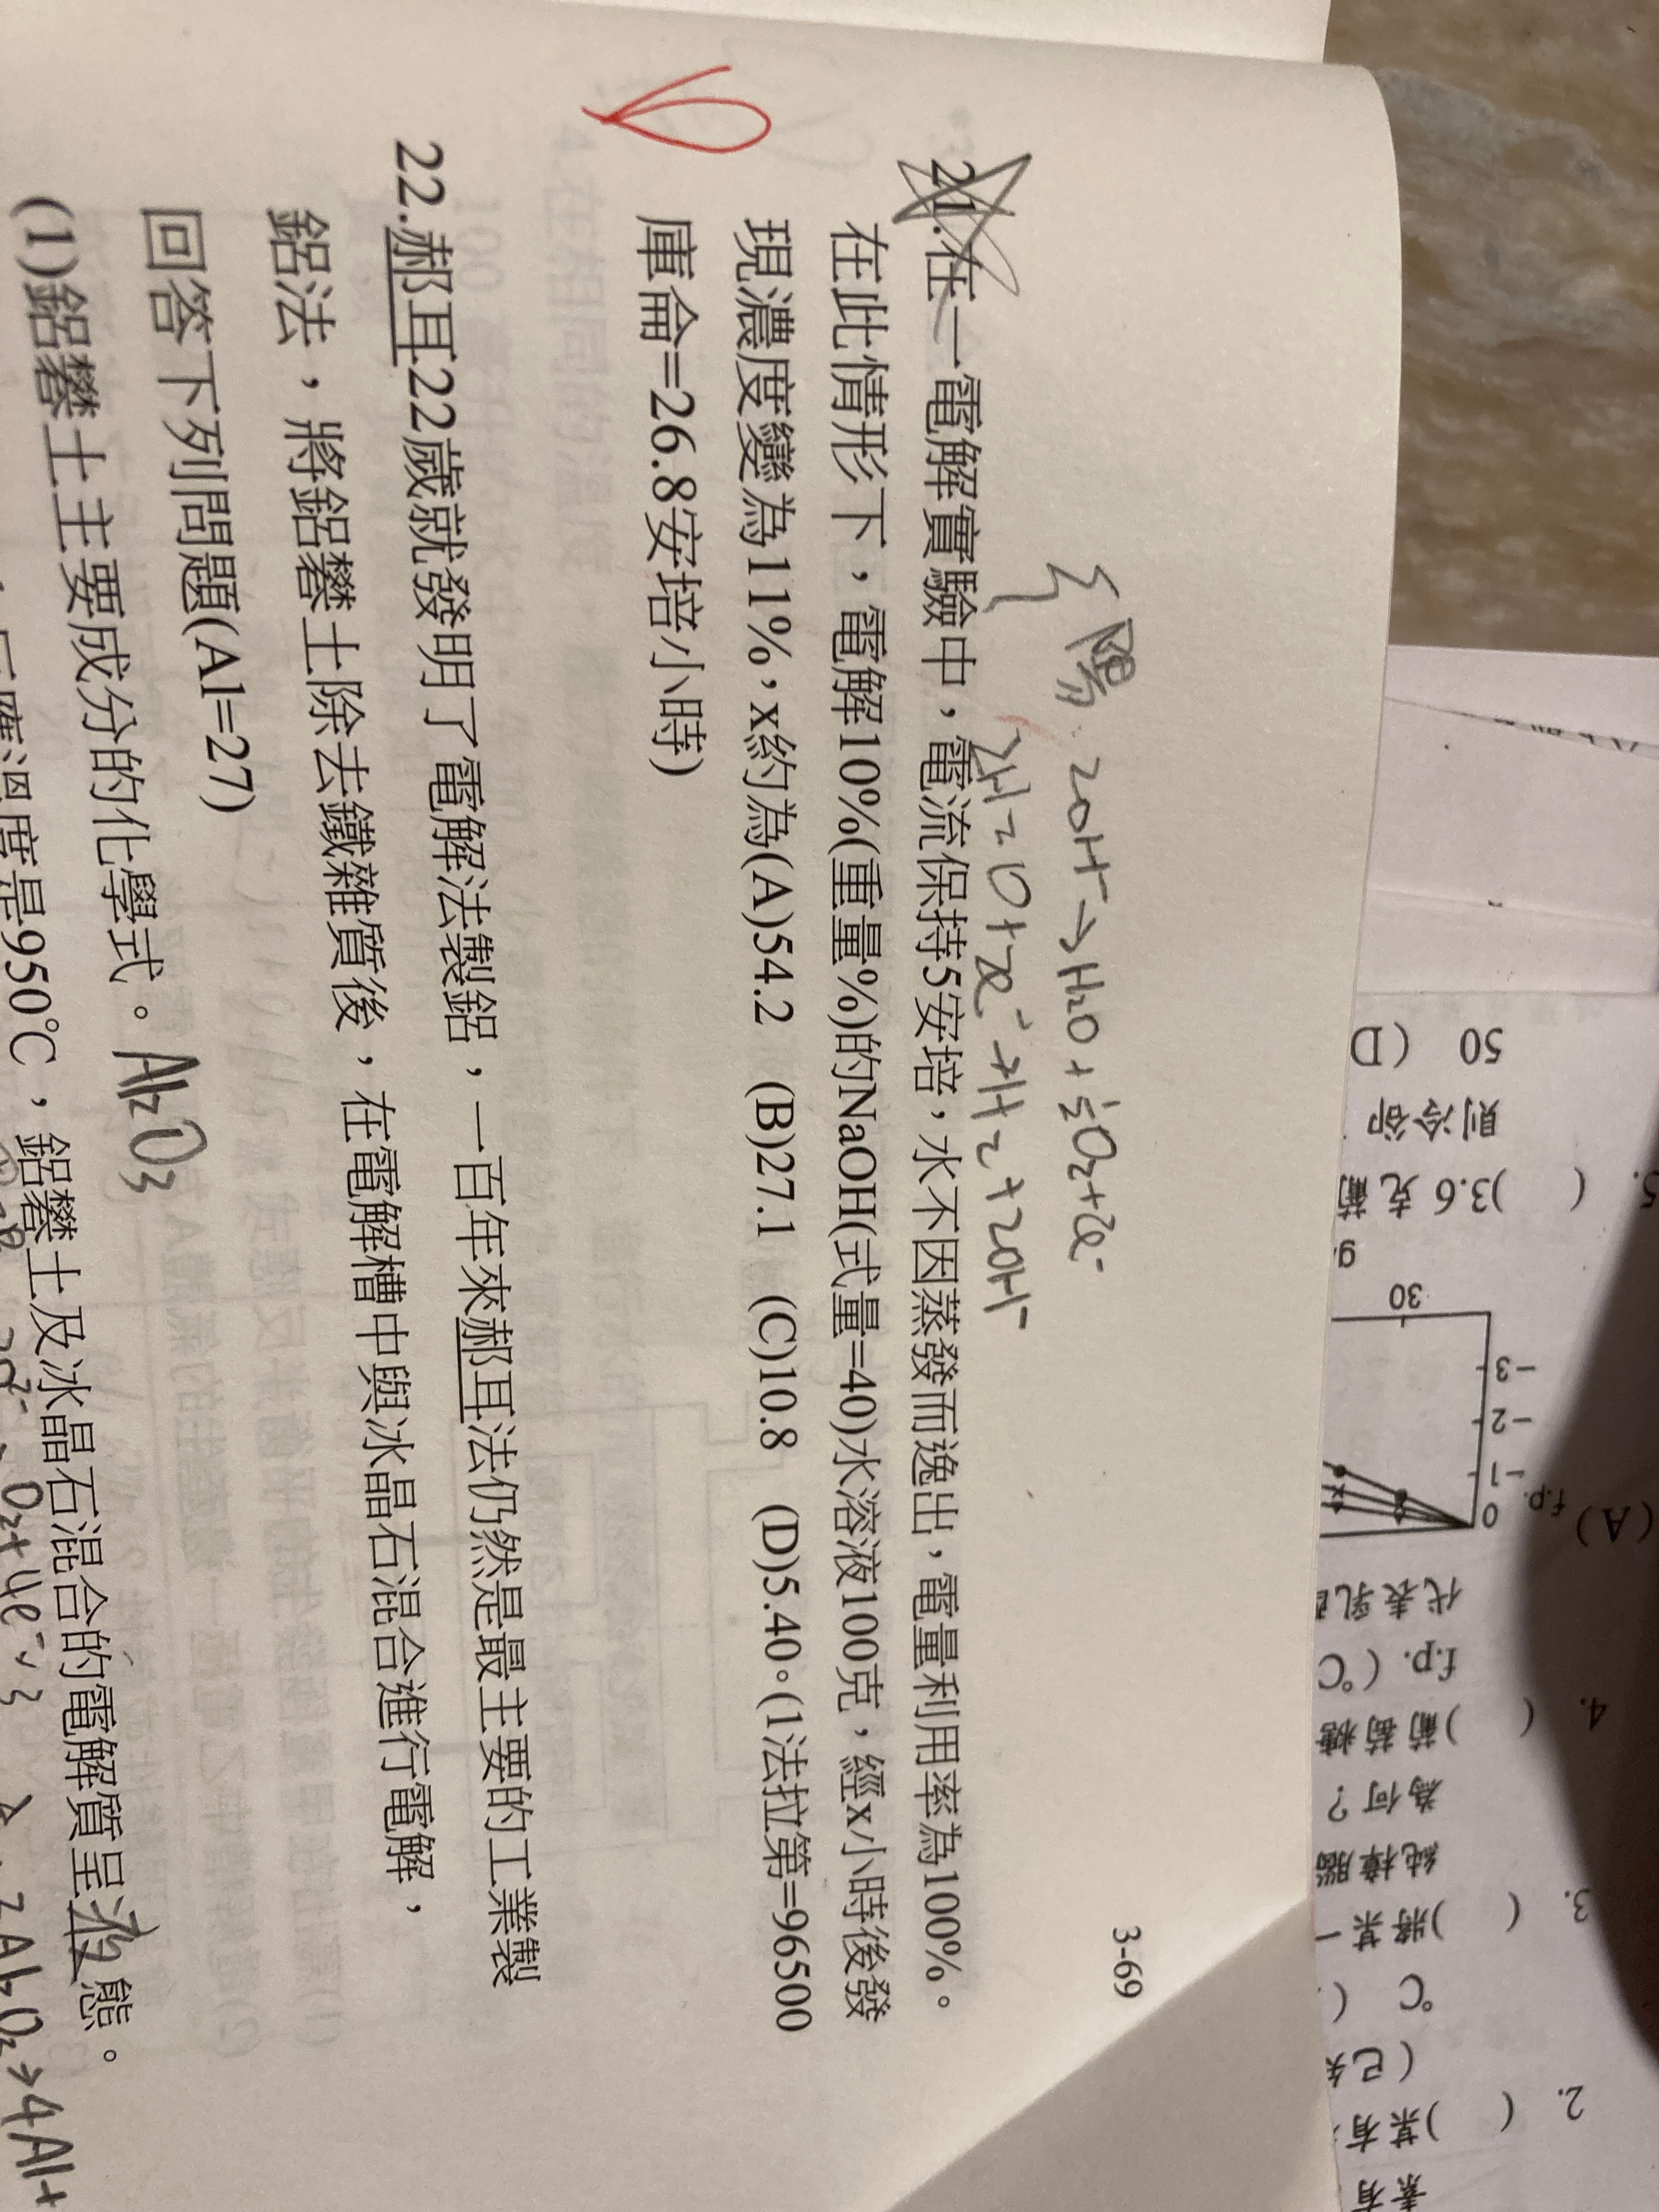 3-69
陽: 2OH⁻→H₂O+½O₂+2e⁻
2H₂O+2e⁻→H₂+2OH⁻
21.在一電解實驗中，電流保持5安培，水不因蒸發而逸出，電量利用率為100%。
在此情形下，電解10%(重量%)的NaOH(式量=40)水溶液100克，經x小時後發
現濃度變為11%，x約為(A)54.2 (B)27.1 (C)10.8 (D)5.40。(1法拉第=96500
庫侖=26.8安培小時)
22.郝耳22歲就發明了電解法製鋁，一百年來郝耳法仍然是最主要的工業製
鋁法，將鋁礬土除去鐵雜質後，在電解槽中與冰晶石混合進行電解，
回答下列問題(Al=27)
(1)鋁礬土主要成分的化學式。Al₂O₃
反應溫度是950℃，鋁礬土及冰晶石混合的電解質呈液態。
O₂+4e⁻
2Al₂O₃→4Al+
2. (
)某有
(已知
℃ (
3. (
)將某一
純樟腦
為何？
4. (
)葡萄糖
f.p. (℃
代表乳
(A)
f.p.
0
-1
-2
-3
30
5. (
)3.6 克葡
則冷卻
50 (D